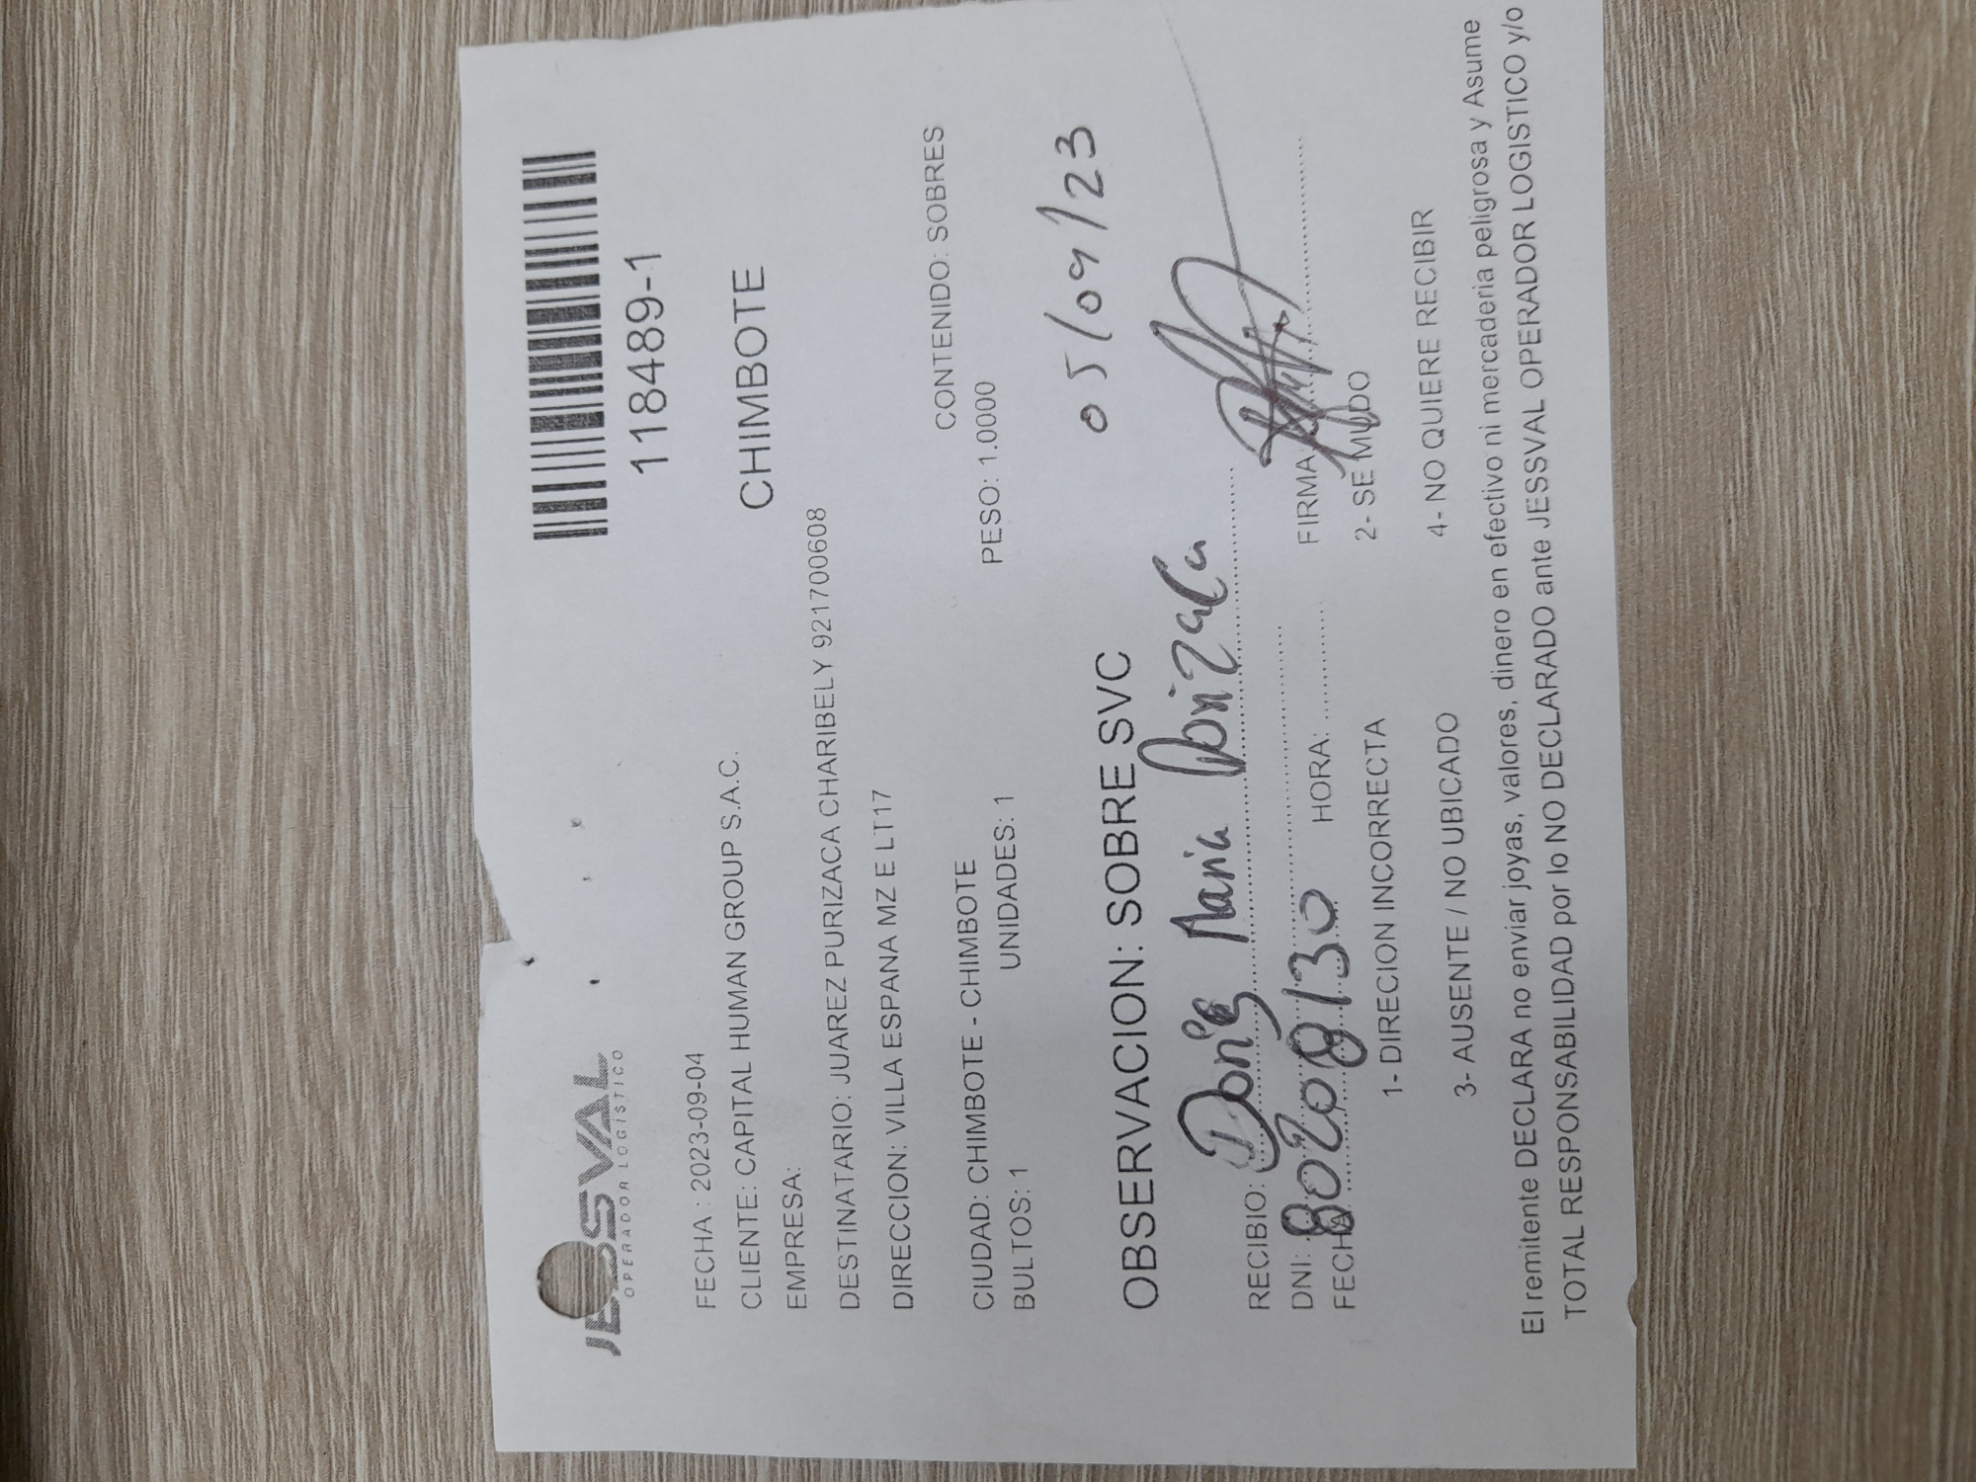 JESSVAL
OPERADOR LOGISTICO
118489-1
FECHA : 2023-09-04
CLIENTE: CAPITAL HUMAN GROUP S.A.C.
CHIMBOTE
EMPRESA:
DESTINATARIO: JUAREZ PURIZACA CHARIBELY 921700608
DIRECCION: VILLA ESPANA MZ E LT17
CONTENIDO: SOBRES
CIUDAD: CHIMBOTE - CHIMBOTE
BULTOS: 1 UNIDADES: 1 PESO: 1.0000
05/09/23
OBSERVACION: SOBRE SVC
RECIBIO: Doris Maria Purizaca
DNI: 80208130
FECHA: HORA: FIRMA
1- DIRECION INCORRECTA 2- SE MUDO
3- AUSENTE / NO UBICADO 4- NO QUIERE RECIBIR
El remitente DECLARA no enviar joyas, valores, dinero en efectivo ni mercaderia peligrosa y Asume
TOTAL RESPONSABILIDAD por lo NO DECLARADO ante JESSVAL OPERADOR LOGISTICO y/o